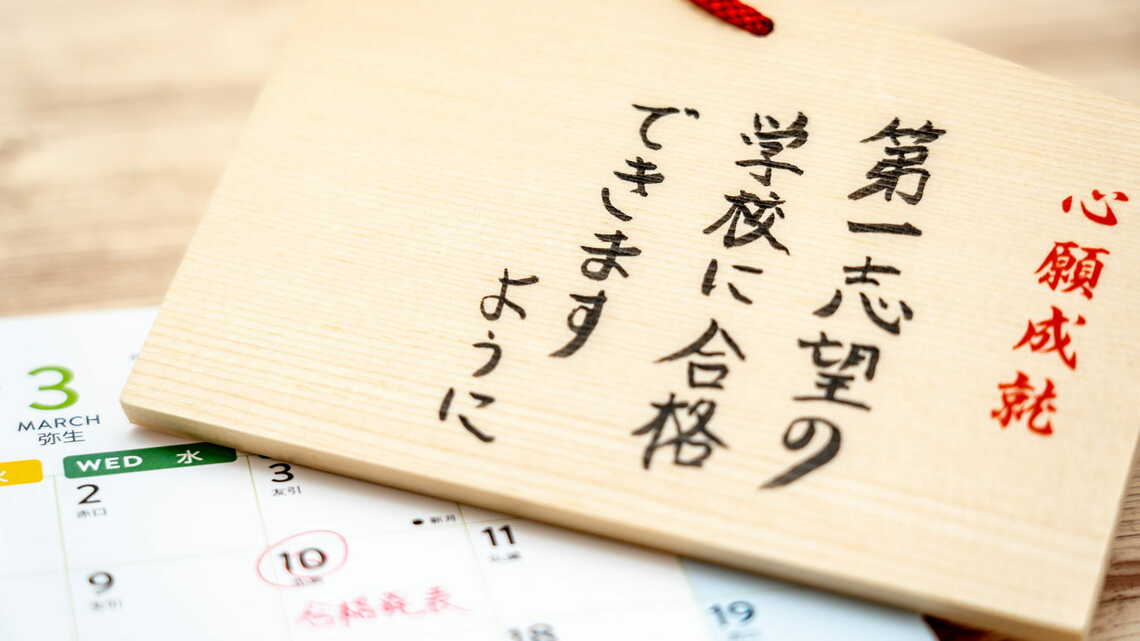 心願成就
第一志望の
学校に合格
できます
ように
3
MARCH
弥生
WED 水
2
赤口
3
友引
● 新月
9
10
11
合格発表
18
19